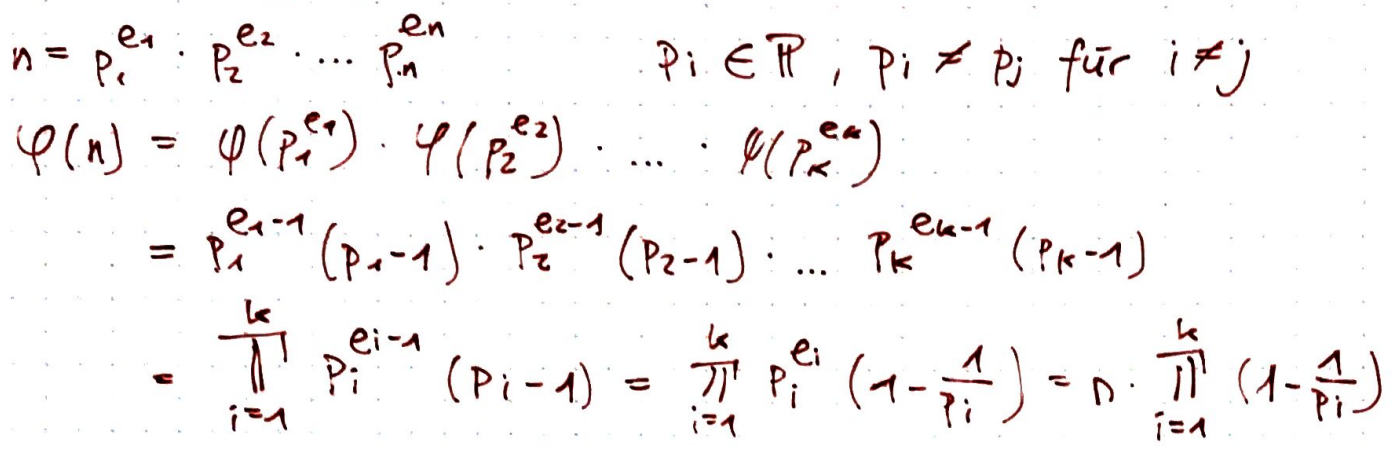 n = p₁^{e₁} · p₂^{e₂} · ... pₙ^{eₙ}    pᵢ ∈ ℙ, pᵢ ≠ pⱼ für i ≠ j
φ(n) = φ(p₁^{e₁}) · φ(p₂^{e₂}) · ... · φ(pₖ^{eₖ})
= p₁^{e₁-1} (p₁-1) · p₂^{e₂-1} (p₂-1) · ... pₖ^{eₖ-1} (pₖ-1)
= ∏_{i=1}^{k} pᵢ^{eᵢ-1} (pᵢ-1) = ∏_{i=1}^{k} pᵢ^{eᵢ} (1-\frac{1}{pᵢ}) = n · ∏_{i=1}^{k} (1-\frac{1}{pᵢ})